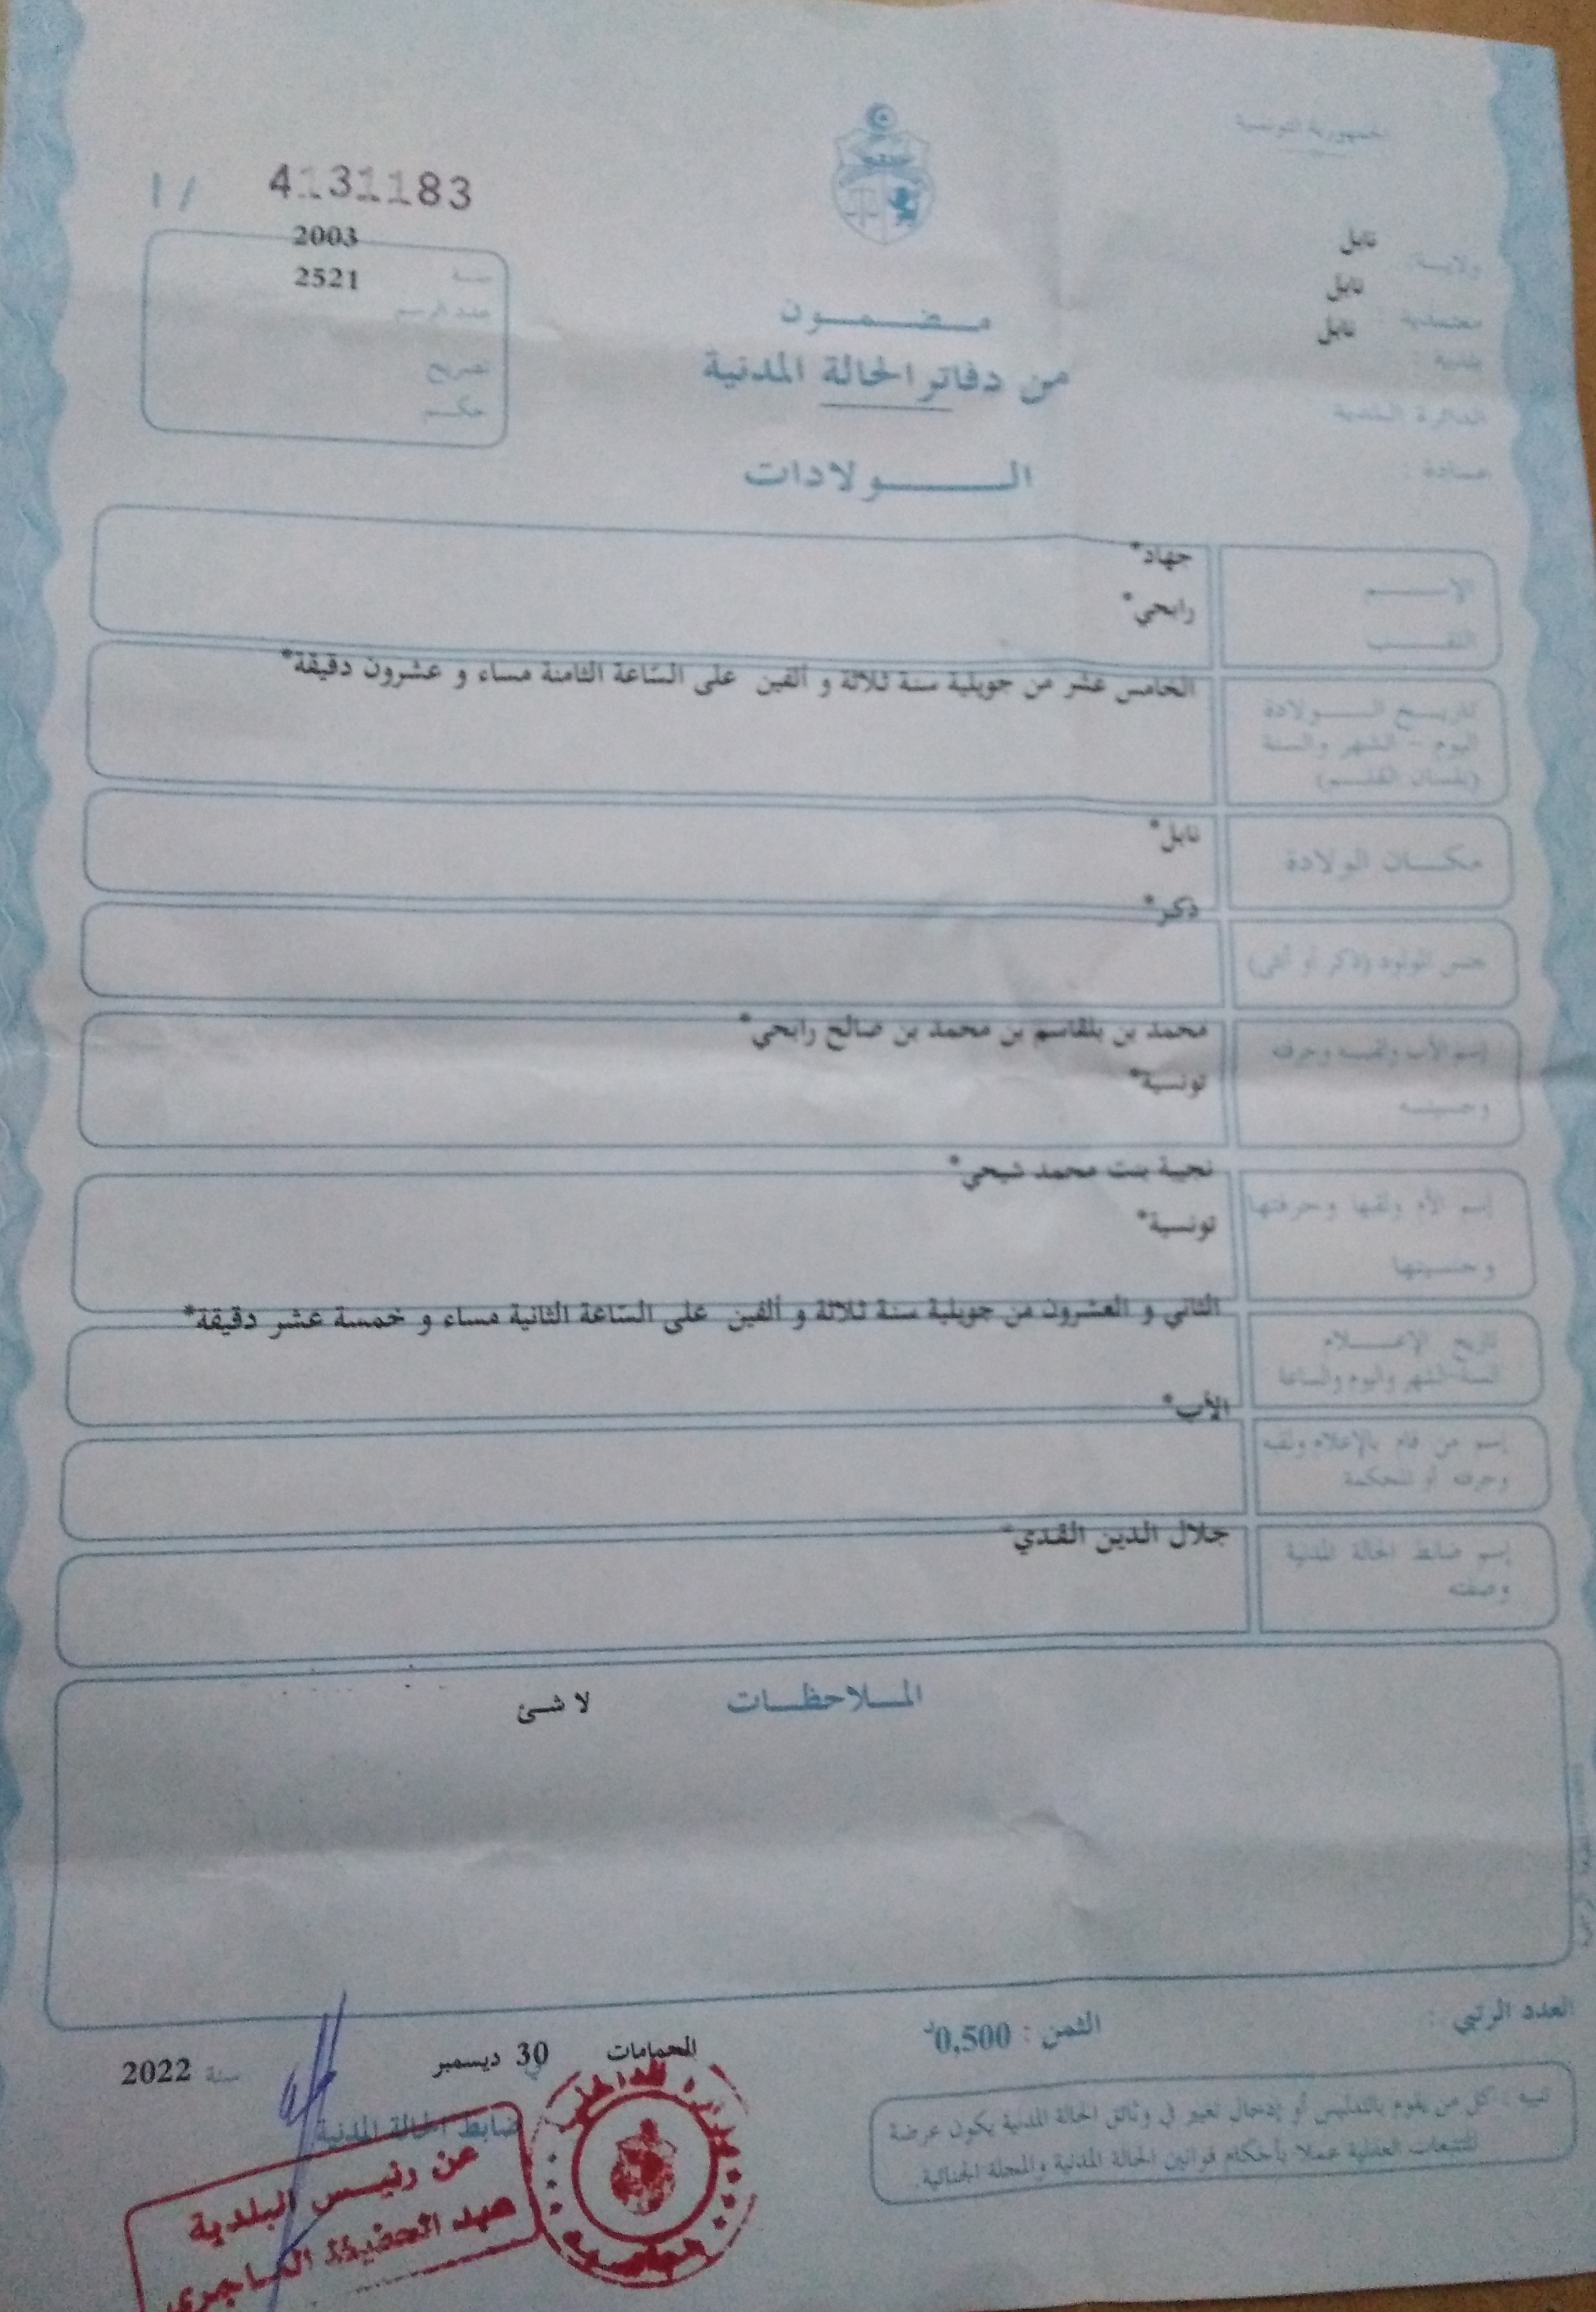 الجمهورية التونسية
4131183
1 /
ولاية: نابل
معتمدية: نابل
بلدية: نابل
الدائرة البلدية
عمادة:
2003
سنة
2521
عدد الرسم
تصريح
حكم
مضمون
من دفاتر الحالة المدنية
الولادات
الاسم
جهاد*
اللقب
رابحي*
تاريخ الولادة
اليوم - الشهر والسنة
(بلسان القلم)
الخامس عشر من جويلية سنة ثلاثة و ألفين على السّاعة الثامنة مساء و عشرون دقيقة*
مكان الولادة
نابل*
جنس المولود (ذكر أو أنثى)
ذكر*
إسم الأب ولقبه وحرفته
وجنسيته
محمد بن بلقاسم بن محمد بن صالح رابحي*
تونسية*
إسم الأم ولقبها وحرفتها
وجنسيتها
نجيبة بنت محمد شيحي*
تونسية*
تاريخ الإعلام
السنة والشهر واليوم والساعة
الثاني و العشرون من جويلية سنة ثلاثة و ألفين على السّاعة الثانية مساء و خمسة عشر دقيقة*
إسم من قام بالإعلام ولقبه
وحرفته أو المحكمة
الأب*
إسم ضابط الحالة المدنية
وصفته
جلال الدين القدي*
الملاحظات
لا شئ
العدد الرتبي :
الثمن : 0,500د
الحمامات في 30 ديسمبر سنة 2022
ضابط الحالة المدنية
عن رئيس البلدية
تنبيه : كل من يقوم بالتدليس أو إدخال تغيير في وثائق الحالة المدنية يكون عرضة
للتتبعات العدلية عملا بأحكام قوانين الحالة المدنية والمجلة الجنائية.